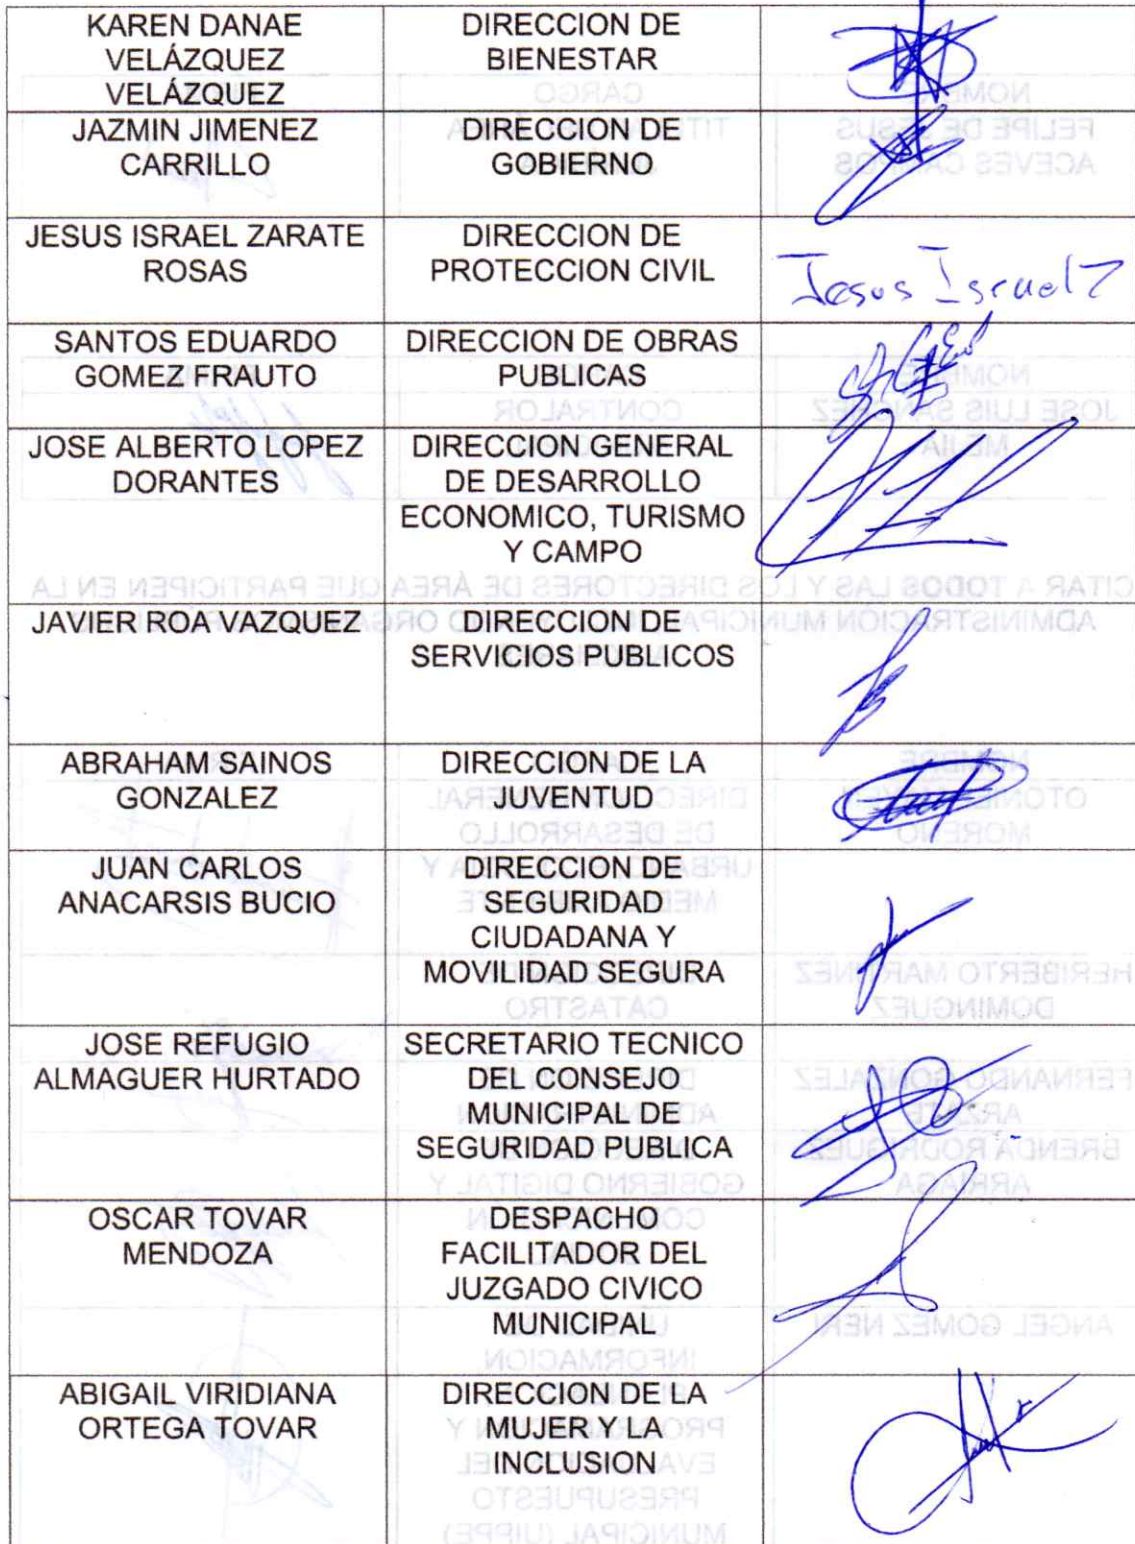 KAREN DANAE
VELÁZQUEZ
VELÁZQUEZ
DIRECCION DE
BIENESTAR
JAZMIN JIMENEZ
CARRILLO
DIRECCION DE
GOBIERNO
JESUS ISRAEL ZARATE
ROSAS
DIRECCION DE
PROTECCION CIVIL
Jesus Israel Z
SANTOS EDUARDO
GOMEZ FRAUTO
DIRECCION DE OBRAS
PUBLICAS
JOSE ALBERTO LOPEZ
DORANTES
DIRECCION GENERAL
DE DESARROLLO
ECONOMICO, TURISMO
Y CAMPO
JAVIER ROA VAZQUEZ
DIRECCION DE
SERVICIOS PUBLICOS
ABRAHAM SAINOS
GONZALEZ
DIRECCION DE LA
JUVENTUD
JUAN CARLOS
ANACARSIS BUCIO
DIRECCION DE
SEGURIDAD
CIUDADANA Y
MOVILIDAD SEGURA
JOSE REFUGIO
ALMAGUER HURTADO
SECRETARIO TECNICO
DEL CONSEJO
MUNICIPAL DE
SEGURIDAD PUBLICA
OSCAR TOVAR
MENDOZA
DESPACHO
FACILITADOR DEL
JUZGADO CIVICO
MUNICIPAL
ABIGAIL VIRIDIANA
ORTEGA TOVAR
DIRECCION DE LA
MUJER Y LA
INCLUSION